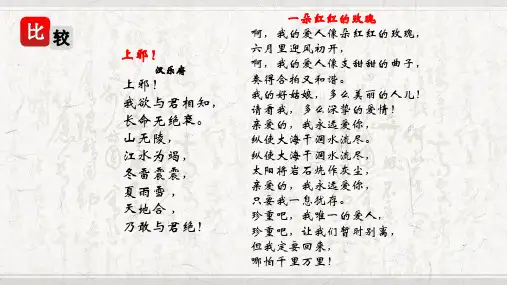 比较
上邪！
汉乐府
上邪！
我欲与君相知，
长命无绝衰。
山无陵，
江水为竭，
冬雷震震，
夏雨雪，
天地合，
乃敢与君绝！
一朵红红的玫瑰
啊，我的爱人像朵红红的玫瑰，
六月里迎风初开，
啊，我的爱人像支甜甜的曲子，
奏得合拍又和谐。
我的好姑娘，多么美丽的人儿！
请看我，多么深挚的爱情！
亲爱的，我永远爱你，
纵使大海干涸水流尽。
纵使大海干涸水流尽，
太阳将岩石烧作灰尘，
亲爱的，我永远爱你，
只要我一息犹存。
珍重吧，我唯一的爱人，
珍重吧，让我们暂时别离，
但我定要回来，
哪怕千里万里！